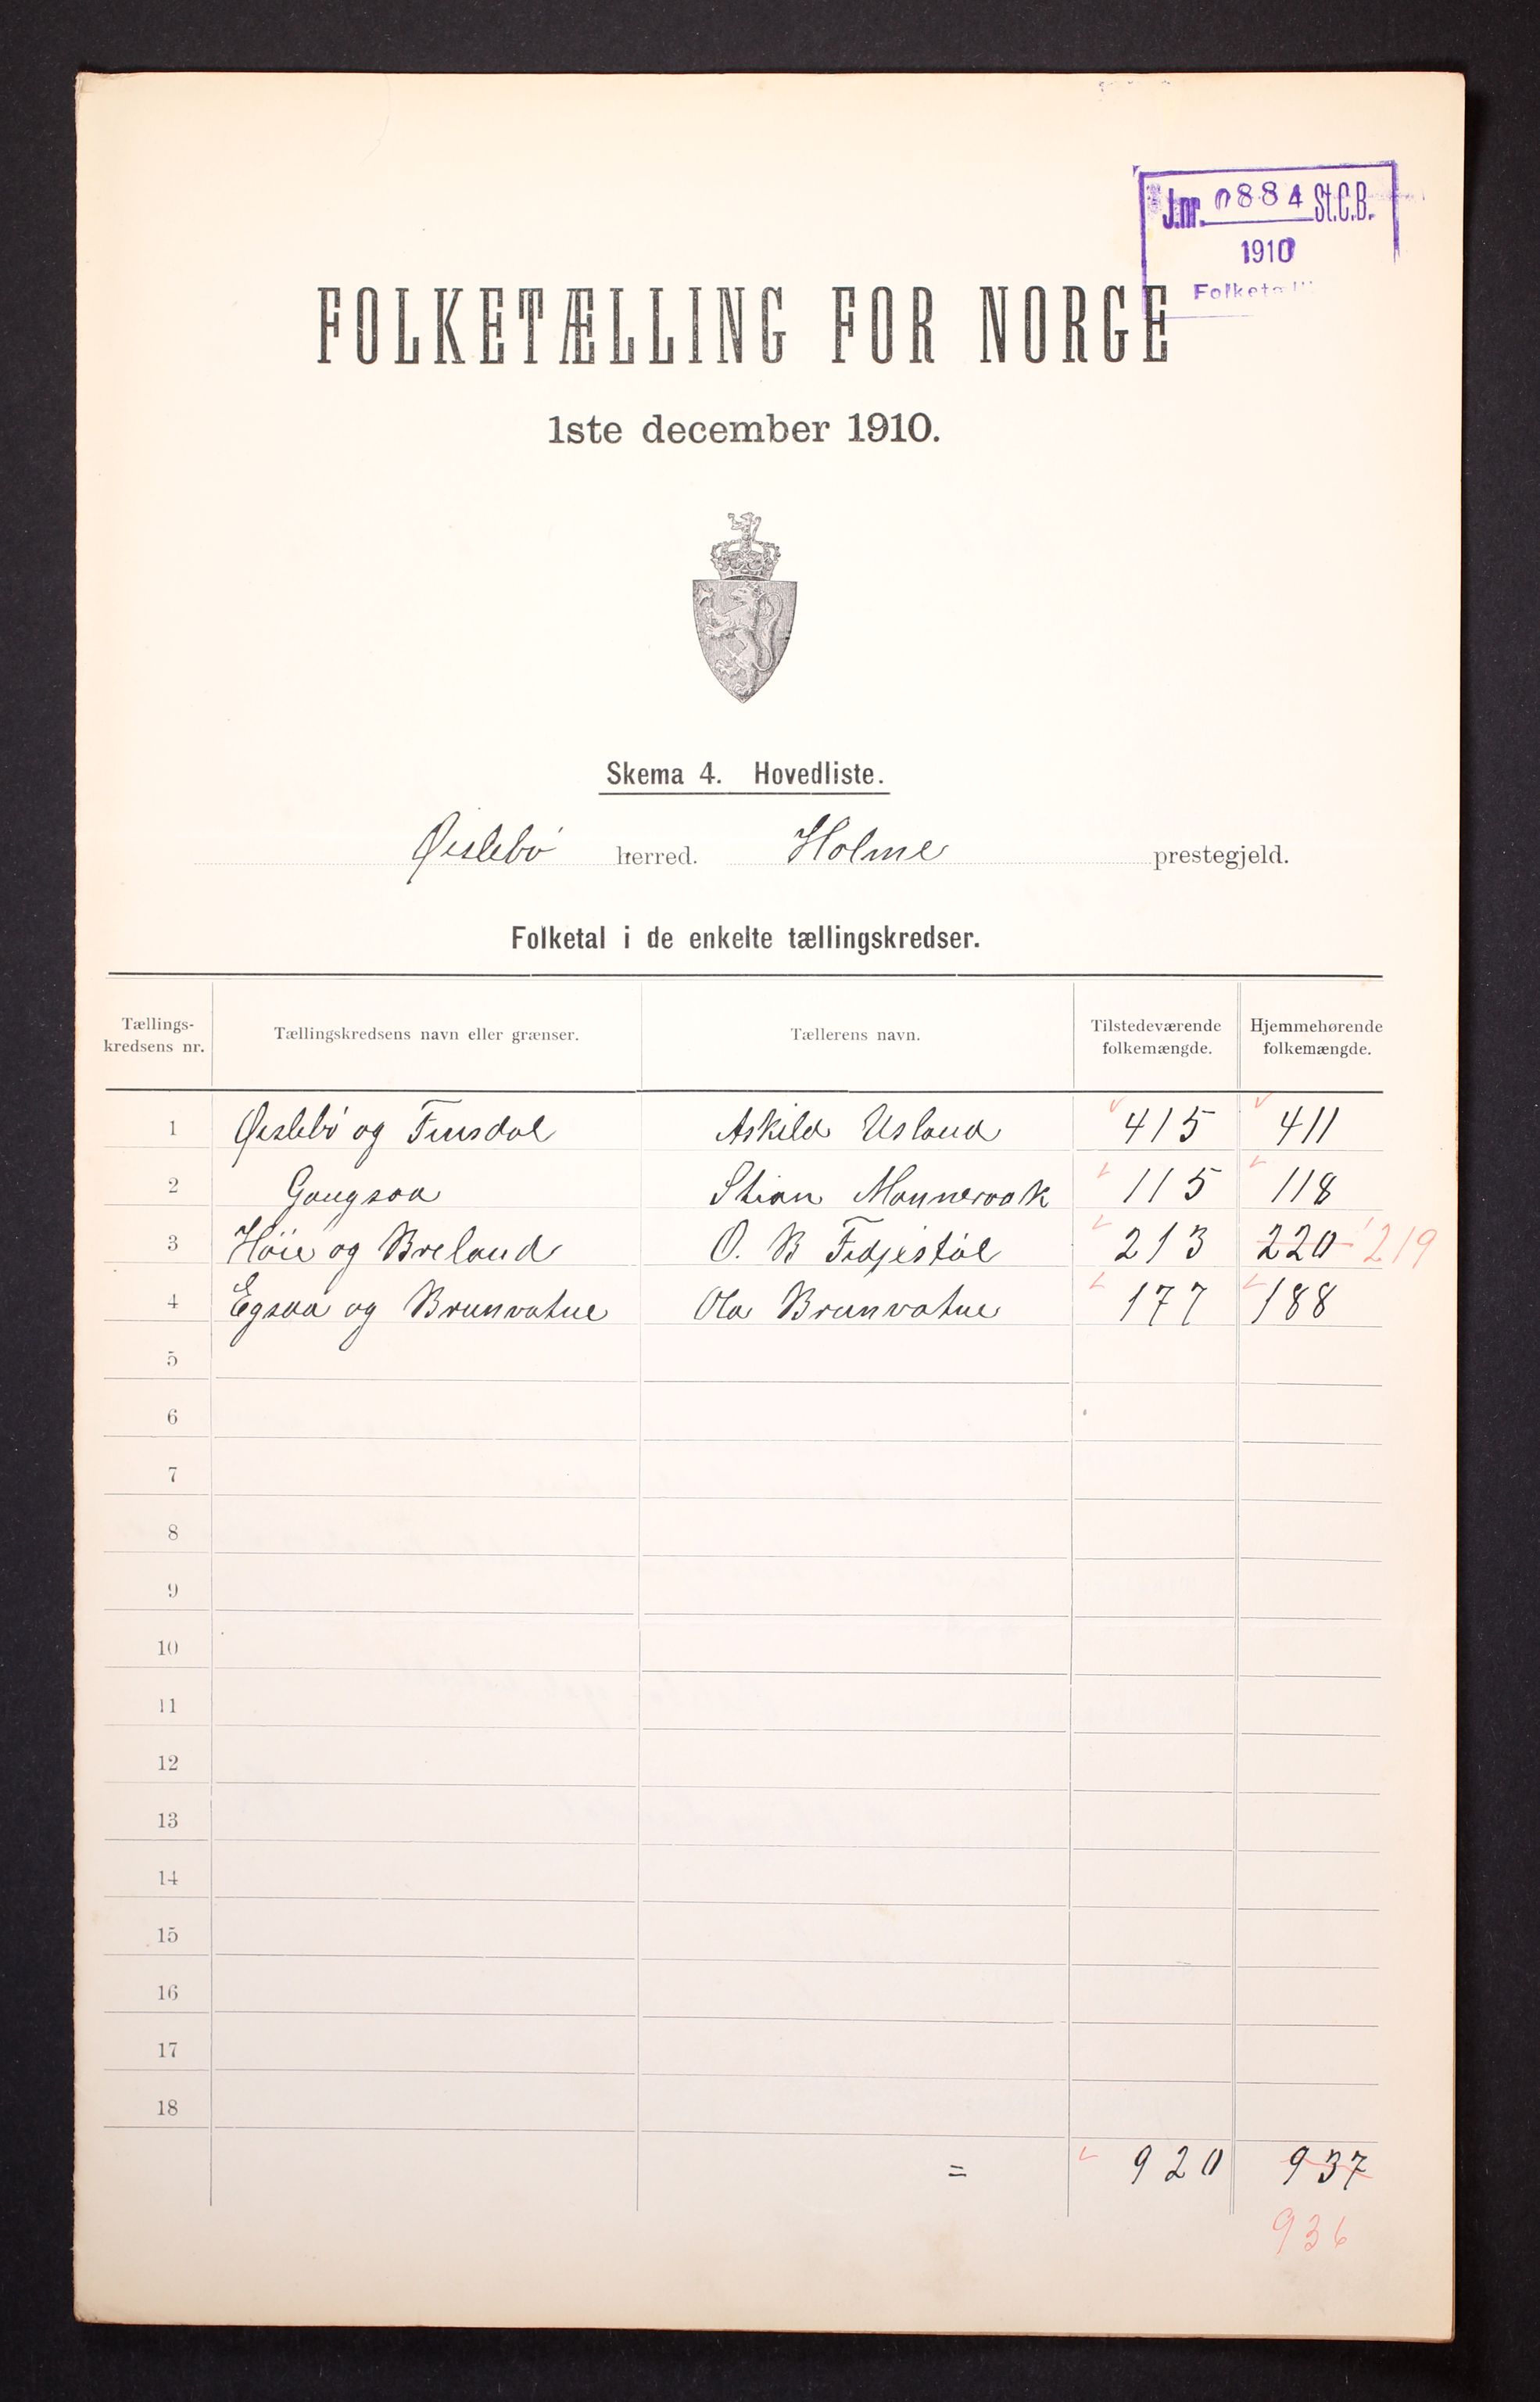 J.nr. 0884 St.C.B.
1910
FOLKETÆLLING FOR NORGE
1ste december 1910.
Skema 4. Hovedliste.
Øislebø herred. Holme prestegjeld.
Folketal i de enkelte tællingskredser.
Tællings-kredsens nr. Tællingskredsens navn eller grænser. Tællerens navn. Tilstedeværende folkemængde. Hjemmehørende folkemængde.
1 Øislebø og Finsdal Askild Usland 415 411
2 Gaugsaa Stian Mannevaak 115 118
3 Høie og Breland O. B Fidjestøl 213 220 219
4 Egsaa og Brunvatne Ola Brunvatne 177 188
5
6
7
8
9
10
11
12
13
14
15
16
17
18
= 920 937
936